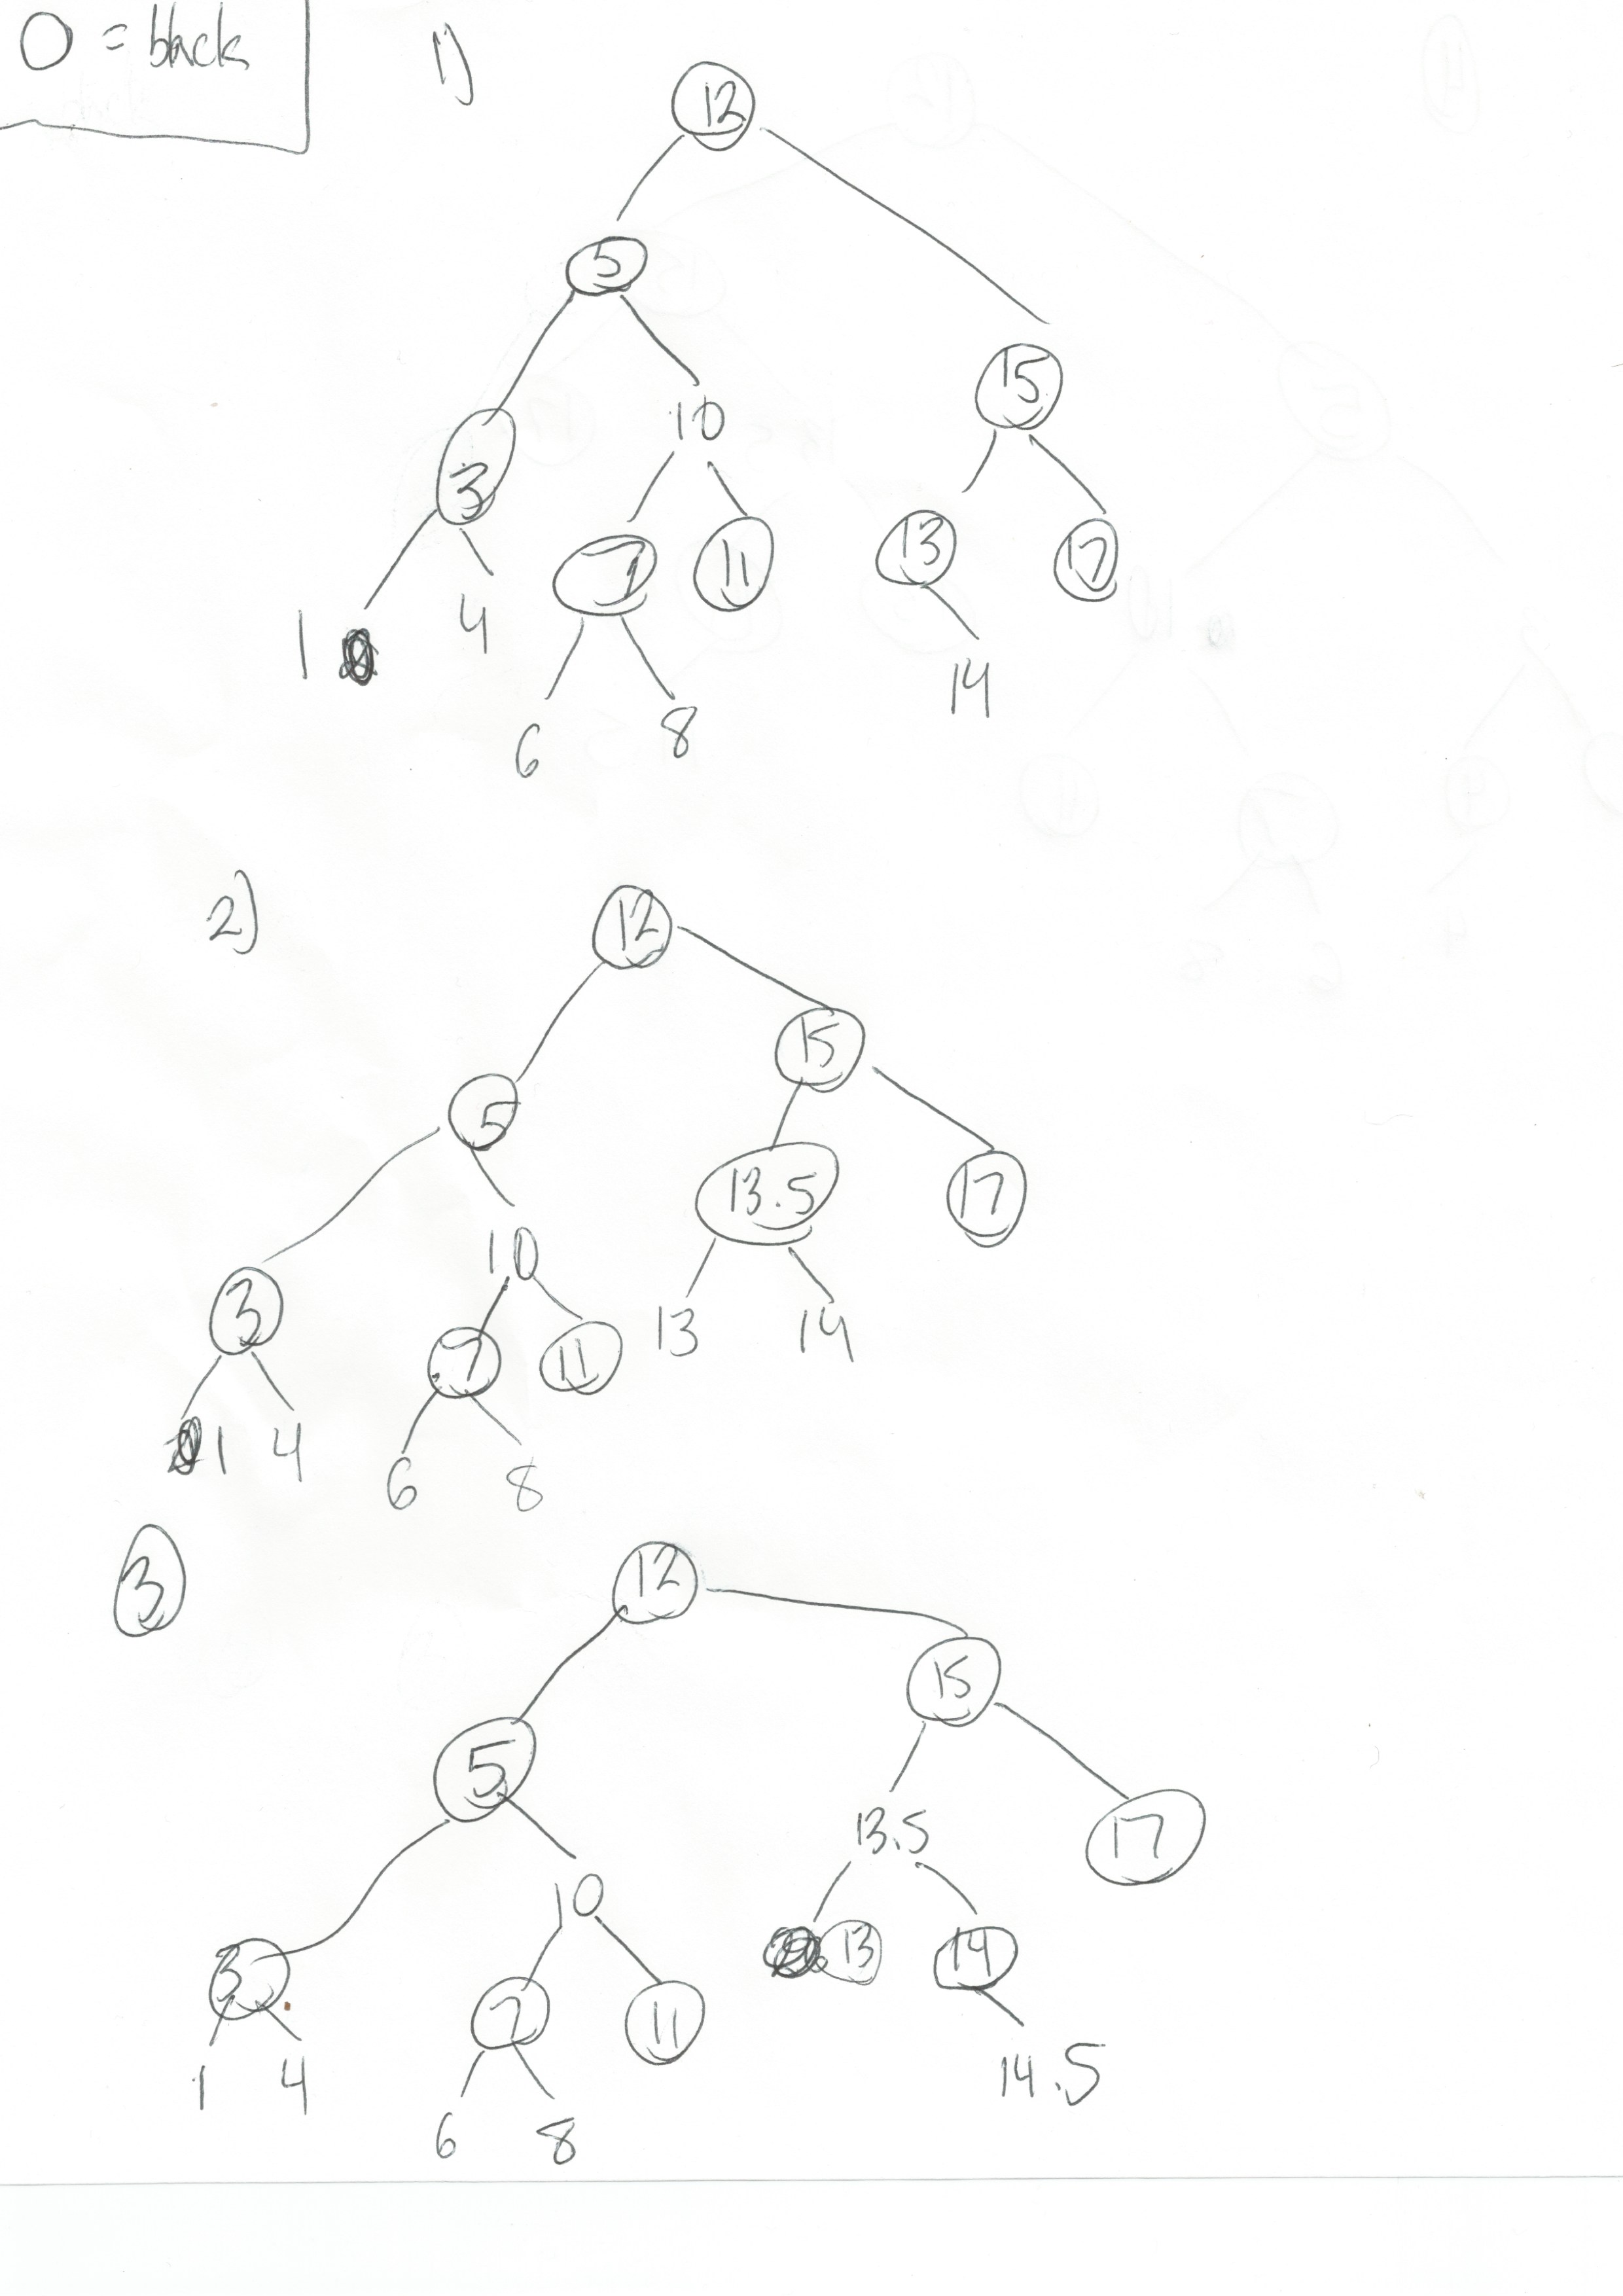 O = black
1)
12
5
15
3 10
13 17
7 11
1 4
14
6 8
2)
12
15
5
13.5 17
10
3
13 14
7 11
1 4
6 8
3
12
15
5
13.5 17
10
3 13 14
7 11
1 4 14.5
6 8